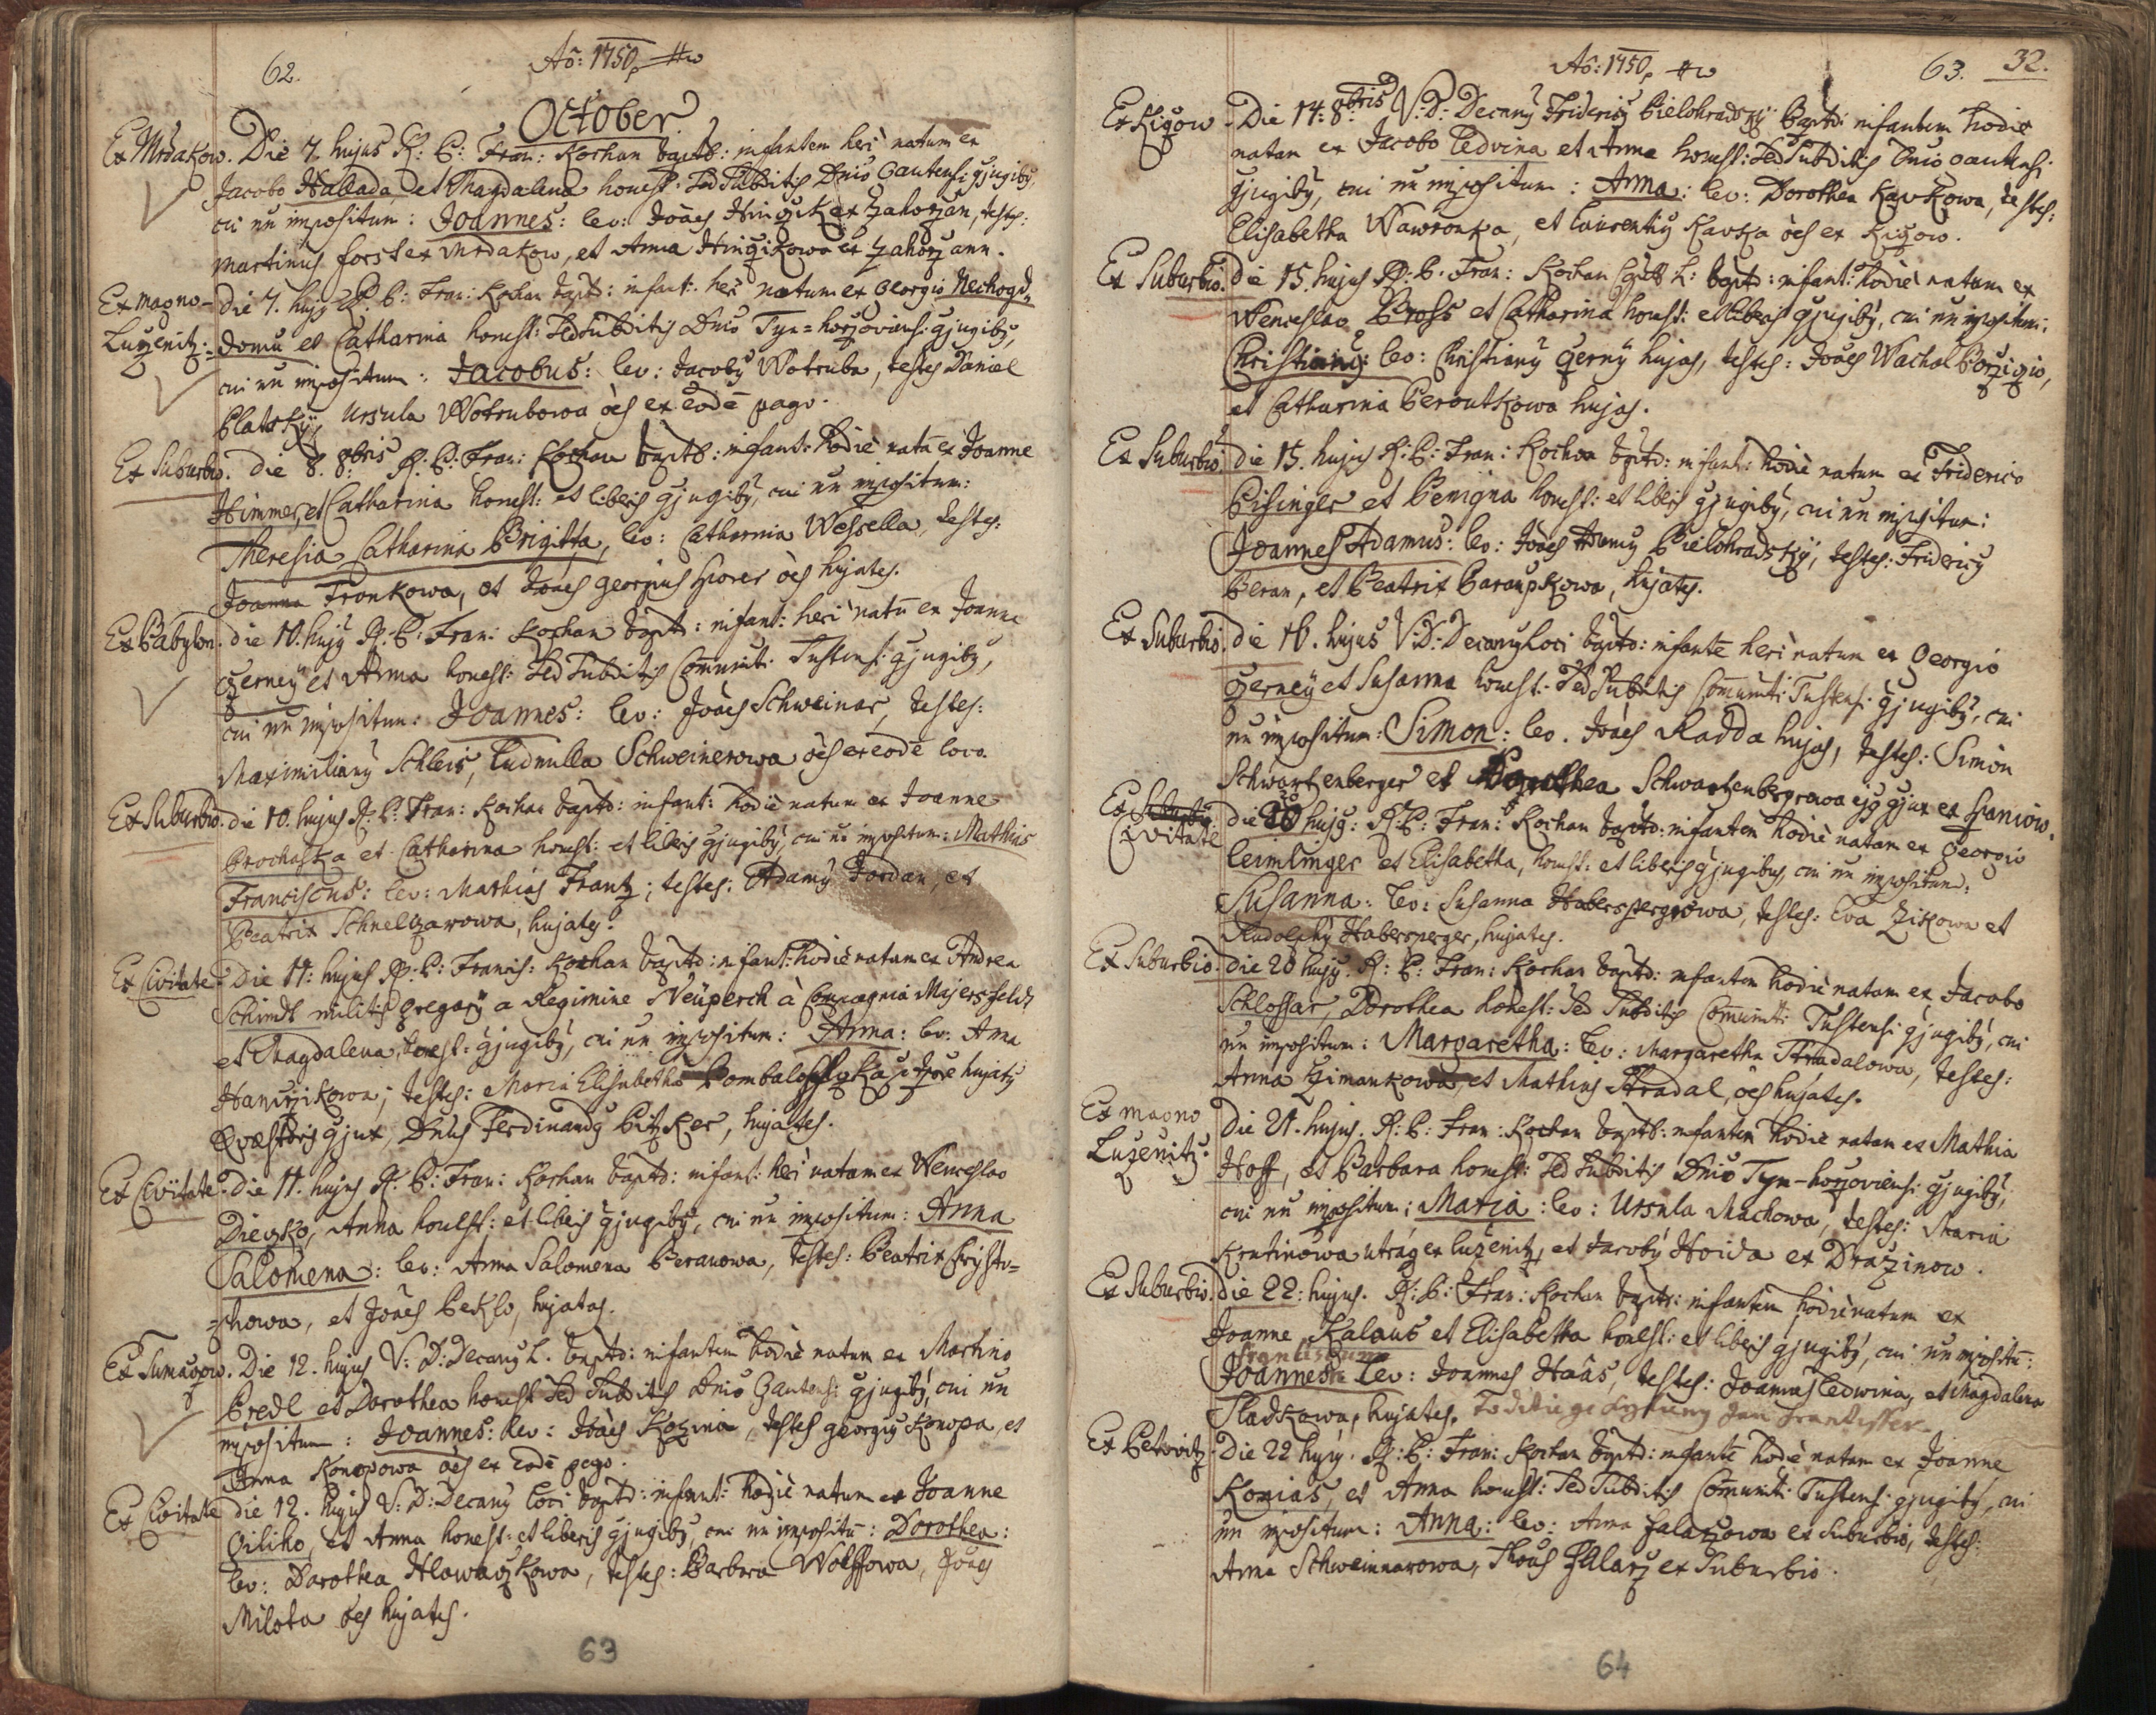 62.
Aõ: 1750
October
Ex Mrdakow. Die 7. hujus R: P: Fran: Kochan bapt: infantem heri natum ex
Jacobo Hallada, et Magdalena honest: sed subditis Dnio Gautensi gjugibg,
cui nn impositum: Joannes: lev: Joães Hinczik ex Zahorzan, testes:
Martinus forst ex Mrdakow, et Anna Hinczikowa ex Zahorzann.
Ex magno-
Luzenitz:
die 7. hujg R: P: Fran: Kochan bapt: infant: heri natum ex Georgio Nechogd=
domu et Catharina honest: sed subditis Dnio Tyn=horzoviensi gjugibg,
cui nn impositum: Jacobus: lev: Jacobg Wotruba, testes Daniel
Platský, Ursula Wotrubowa oẽs ex eodẽ pago.
Ex Suburbio. die 8. 8bris R: P: Fran: Kochan baptb: infant: hodiè natũ ex Joanne
Himmer, et Catharina honest: et liberis gjugibg, cui nn impositum:
Theresia Catharina Brigitta, lev: Catharina Wessella, testes:
Joanna Fronkowa, et Joães Georgius hujates.
Ex Babylon. die 10. hujg R: P: Fran: Kochan bapt: infant: heri natũ ex Joanne
Czerney et Anna honest: sed subditis Comunit: Tustensi gjugibg,
cui nn impositum: Joannes: lev: Joães Schweinar, testes:
Maximiliang Schleis, Ludmilla Schweinerowa oẽs ex eodẽ loco.
Ex Suburbio. die 10. hujus R: P: Fran: Kochan baptd: infant: hodiè natum ex Joanne
Prochaska et Catharina honest: et liberis gjugibg, cui nn impositum: Mathias
Franciscus: lev: Mathias Frantz; testes: Adamg Jordan, et
Beatrix Schnelzarowa, hujates.
Ex Civitate. Die 11: hujus R: P: Francis: Kochan baptd: infant: hodiè natam ex Andrea
Schimdt militis gregarÿ a Regimine Neüperch à Compagnia Majersfeldz
et Magdalena, honest: gjugibg, cui nn impositum: Anna: lev: Anna
Hanczikowa, testes: Maria Elisabetha hujatg
Qvæstoris gjux, Dnus Ferdinandg Pitzker, hujates.
Ex Civitate. Die 11. hujus R: P: Fran: Kochan baptd: infant: heri natam ex Wenceslao
Dieczko, Anna honest: et liberis gjugibg, cui nn impositum: Anna
Salomena: lev: Anna Salomena Beranowa, testes: Beatrix Krysto=
=phowa, et Joães Peklo, hujates.
Die 12. hujus V: D: Decang L. baptd: infantem hodiè natum ex Martino
Predl et Dorothea honest: sed subditis Dnio Gautensi gjugibg, cui nn
impositum: Joannes: lev: Joães Kozina, testes Georgig Konopa, et
Anna Konopowa oẽs ex eodẽ pago.
Ex Civitate die 12. hujus V: D: Decang loci baptd: infant: hodiè natum ex Joanne
et Anna honest: et liberis gjugibg, cui nn impositũ: Dorothea:
lev: Dorothea Hlawaczkowa, testes: Barbara Wolffowa, Joães
Milota oẽs hujates.
63
Aõ: 1750
63. 32.
Ex Kiczow. Die 14. 8bris V: D: Decang Friderig Bielohradskÿ Baptd: infantem hodiè
natam ex Jacobo Ledvina et Anna honest: sed subditis Dnio Gautensi
gjugibg, cui nn impositum: Anna: lev: Dorothea Kavkowa, testes:
Elisabetha Wawronka, et Laurentig Kavka oẽs ex Kiczow.
Ex Suburbio. die 15. hujus R: P: Fran: Kochan L: baptd: infant: hodiè natum ex
Wenceslao Bross et Catharina honest: et liberis gjugibg, cui nn impositum:
Christiang: lev: Christiang Czernÿ hujas, testes: Joães Wachal
et Catharina Peroutkowa hujas.
Ex Suburbio die 15. hujus R: P: Fran: Kochan baptd: infant: hodiè natum ex Friderico
Pisinger et Benigna honest: et liberis gjugibg, cui nn impositum:
Joannes Adamus: lev: Joães Adamg Bielohradskÿ, testes: Friderig
Beran, et Beatrix Baraupkowa, hujates.
Ex Suburbio. die 16. hujus V: D: Decang Loci baptd: infantẽ heri natum ex Georgio
Czerneÿ et Susanna honest: sed subditis Comunit: Tustensi gjugibg, cui
nn impositum: Simon: lev. Joães Radda hujas, testes: Simon
Schwartzenberger et Dorothea Schwartzenbergrowa ejg gjux ex
Ex Suburbio
Civitate
die 20 hujg: R: P: Fran: Kochan baptd: infantem hodiè natam ex Georgio
Leimlinger et Elisabetha, honest: et liberis gjugibus, cui nn impositum:
Susanna: lev: Susanna Haberspergrowa, testes: Eva Zikowa et
Rudolphg Habersperger, hujates.
Ex Suburbio. die 20 hujg. R: P: Fran: Kochan baptd: infantem hodiè natam ex Jacobo
Schlossar, Dorothea honest: sed subditis Comunit: Tustensi gjugibg, cui
nn impositum: Margaretha: lev: Margaretha Stradalowa, testes:
Anna Czimankowa, et Mathias Stradal, oẽs hujates.
Ex magno
Luzenitz:
Die 21. hujus. R: P: Fran: Kochan baptb: infantem hodiè natam ex Mathia
Hoff, et Barbara honest: sed subditis Dnio Tyn-horzoviensi gjugibg,
cui nn impositum: Maria: lev: Ursula Machowa, testes: Maria
Krutinowa utraq ex Luzenitz, et Jacobg Hoida ex Drazinow.
Ex Suburbio. die 22: hujus. R: P: Fran: Kochan baptd: infantem hodiè natum ex
Joanne Kalaus et Elisabetha honest: et liberis gjugibg, cui nn impositũ:
Frantiskum
Joannes: Lev: Joannes Haås, testes: Joannes Ledwina, et Magdalena
Sladkowa, hujates.
Ex Petrovitz. Die 22 hujg. R: P: Fran: Kochan baptd: infantẽ hodiè natam ex Joanne
Konias, et Anna honest: sed subditis Comunit: Tustensi gjugibg, cui
nn impositum: Anna: lev: Anna Falarzowa ex Suburbio, testes:
Anna Schweinnarowa, ex Suburbio.
64